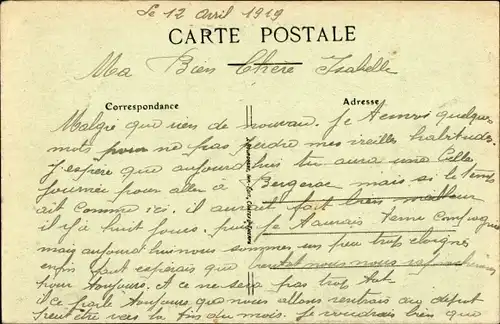 Le 12 avril 1919
CARTE POSTALE
Ma Bien Chère Isabelle
Correspondance
Adresse
Malgré que rien de nouveau. Je t'envois quelques
mots pour ne pas perdre mes vieilles habitudes.
J'espère que aujourd'hui tu aura une belle
journée pour aller a Bergerac mais si le temps
ait comme ici. il aurait fait bien meilleur
il y a huit jours. puis je t'aurais tenu compagnie
mais aujourd'hui nous sommes un peu trop éloigné
enfin faut esperais que bientot nous nous
pour toujours. A ce ne sera pas trop tot
il ce parle toujours que nous allons rentrais au dépot
peut être vers la fin du mois. Je voudrais bien que